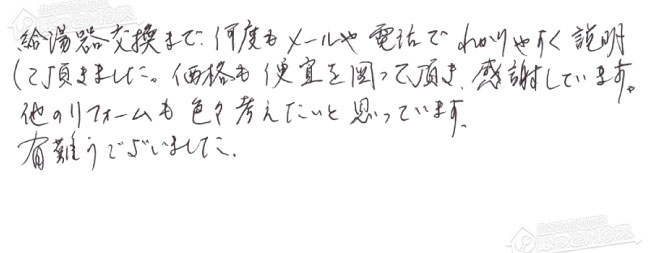 給湯器交換まで、何度もメールや電話でわかりやすく説明
して頂きました。価格も便宜を図って頂き、感謝しています。
他のリフォームも色々考えたいと思っています。
有難うございました。